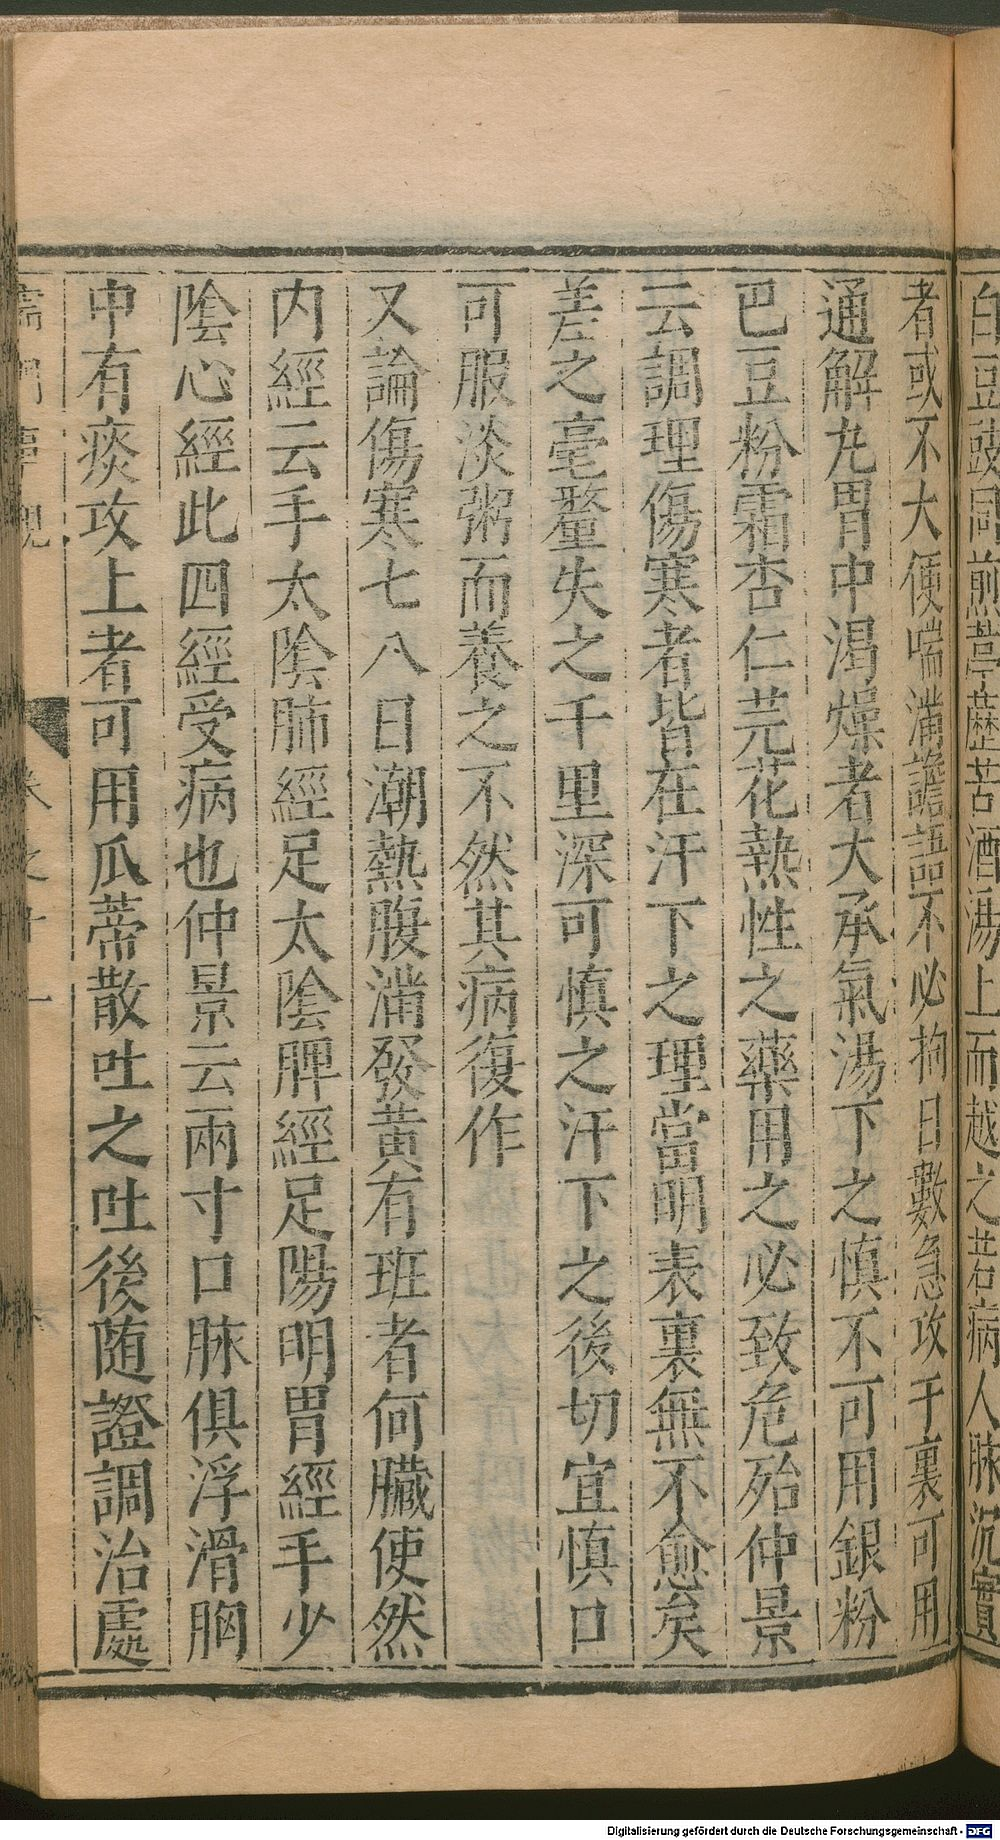 白豆豉同煎葶藶苦酒湯上而越之若病人脉沉實
者或不大便喘滿譫語不必拘日數急攻于裏可用
通解九胃中渴燥者大承氣湯下之慎不可用銀粉
巴豆粉霜杏仁芫花熱性之藥用之必致危殆仲景
云調理傷寒者皆在汗下之理當明表裏無不愈矣
差之毫釐失之千里深可慎之汗下之後切宜慎口
可服淡粥而養之不然其病復作
又論傷寒七八日潮熱腹滿發黃有班者何臟使然
内經云手太陰肺經足太陰脾經足陽明胃經手少
陰心經此四經受病也仲景云兩寸口脉俱浮滑胸
中有痰攻上者可用瓜蒂散吐之吐後随證調治處
儒門事親 卷之十一
Digitalisierung gefördert durch die Deutsche Forschungsgemeinschaft - DFG